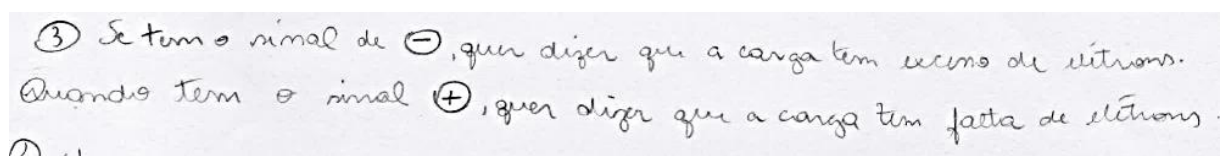 ③ Se tem o sinal de ⊖, quer dizer que a carga tem excesso de elétrons.
Quando tem o sinal ⊕, quer dizer que a carga tem falta de elétrons.